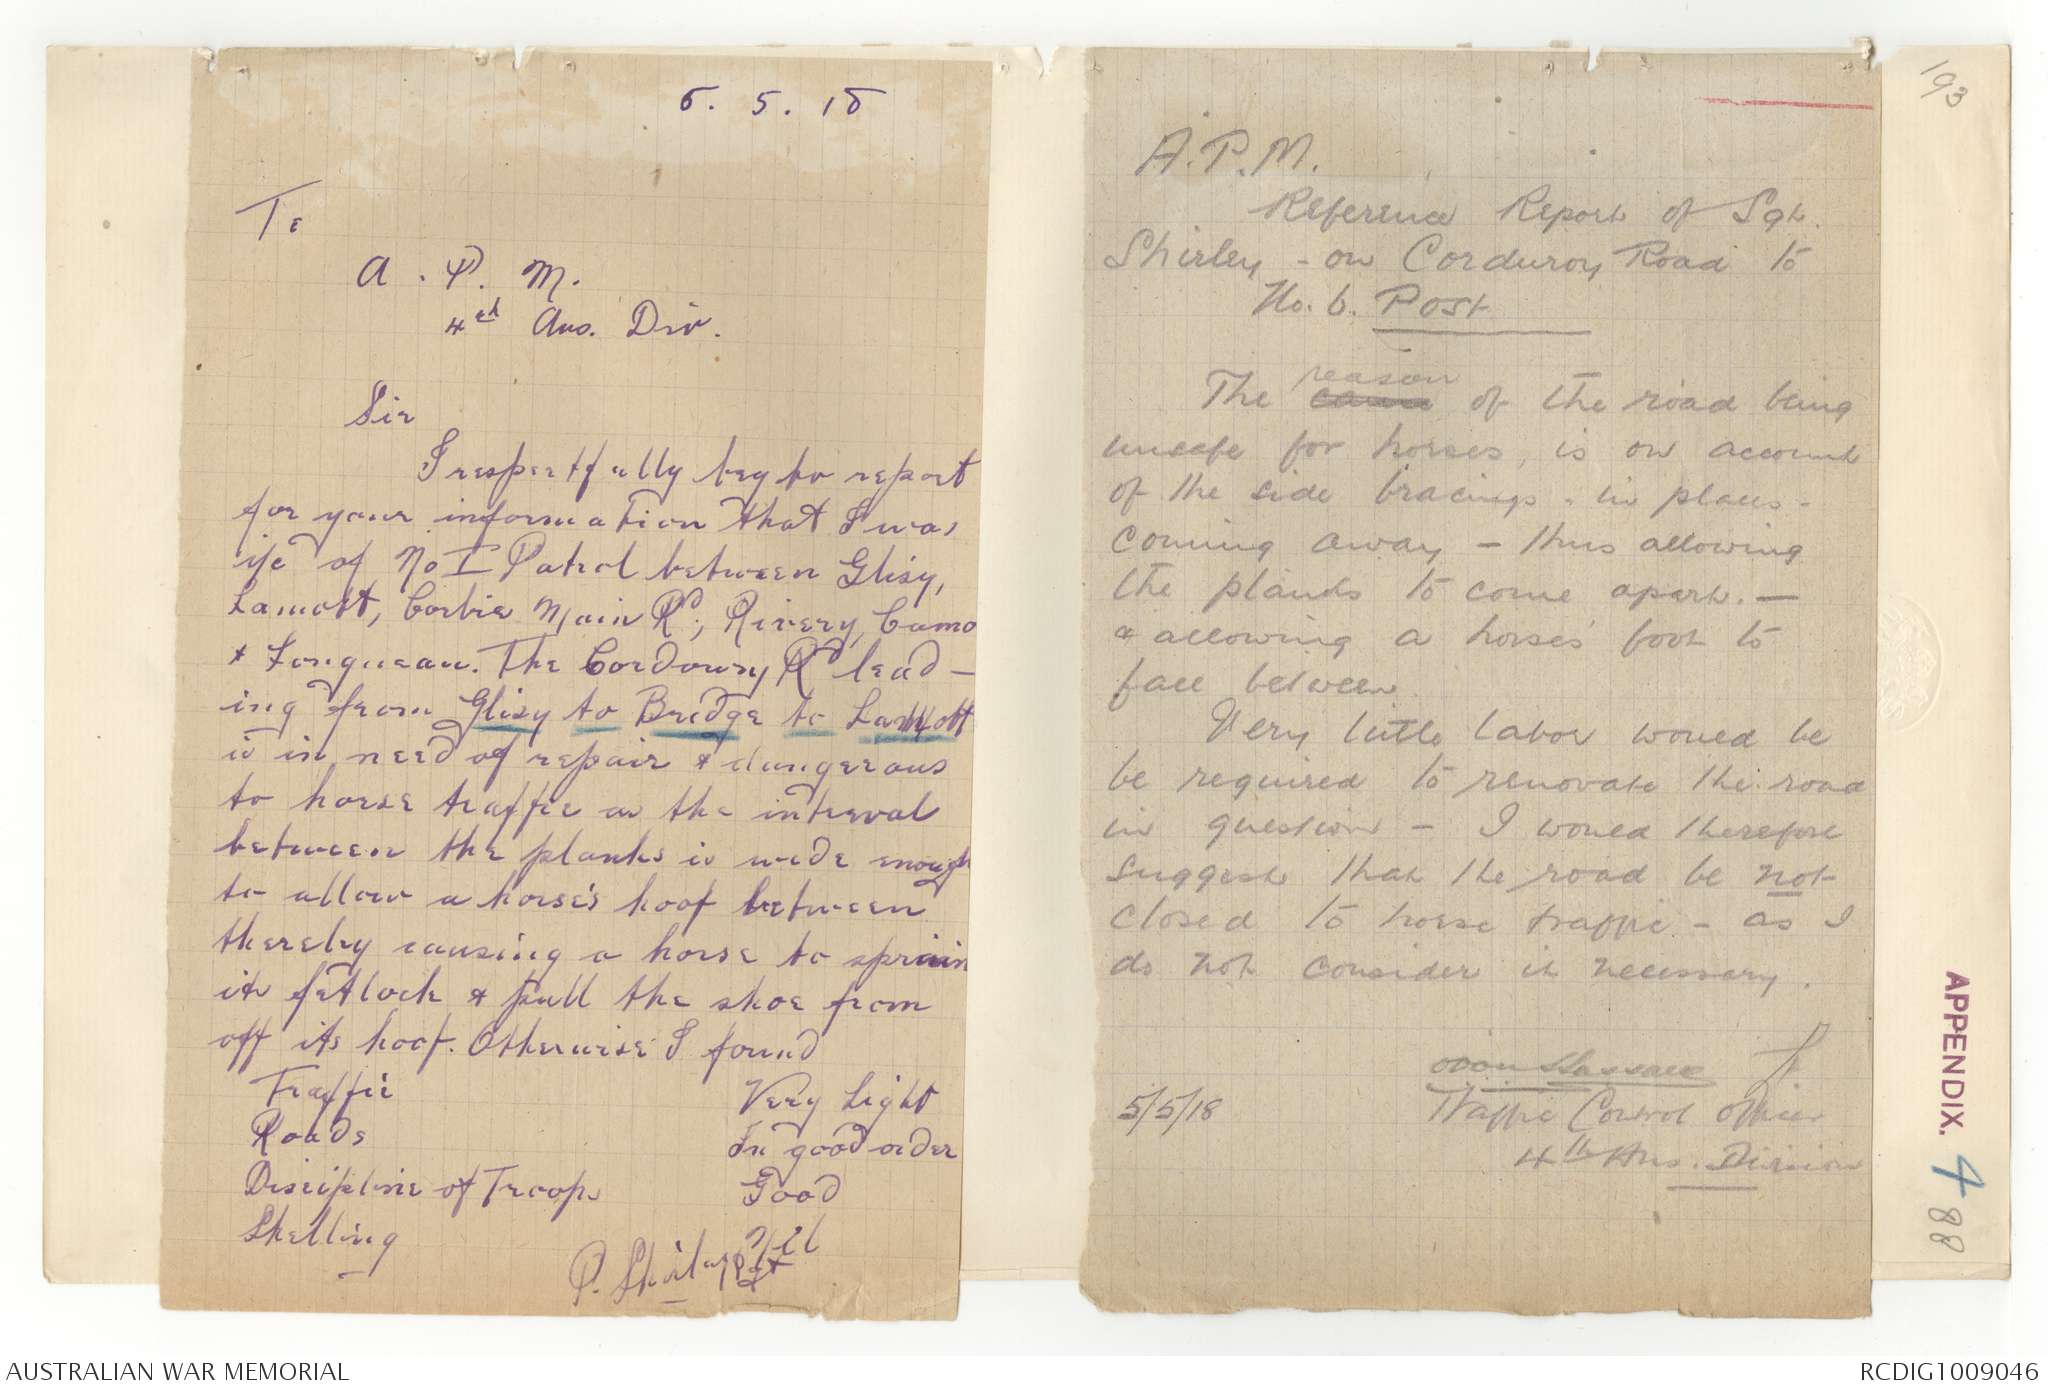 5. 5. 18
To
A. P. M.
4th Aus. Div.
Sir
I respectfully beg to report
for your information that I was
i/c of No I Patrol between Glisy,
Lamott, Corbie Main Rd; Rivery, Camo
& Longueau. The Cordoury Rd lead-
ing from Glisy to Bridge to Lamott
is in need of repair & dangerous
to horse traffic as the interval
between the planks is wide enough
to allow a horse's hoof between
thereby causing a horse to sprain
its fetlock & pull the shoe from
off its hoof. Otherwise I found
Traffic Very Light
Roads In good order
Discipline of Troops Good
Shelling Nil
P. Shirley Sgt
193
A.P.M.
Reference Report of Sgt.
Shirley - on Corduroy Road to
No. 6. Post
The cause reason of the road being
unsafe for horses, is on account
of the side bracings - in places -
coming away - thus allowing
the planks to come apart. -
& allowing a horses' foot to
fall between
Very little labor would be
be required to renovate the road
in question - I would therefore
suggest that the road be not
closed to horse traffic - as I
do not consider it necessary.
Lt
5/5/18 Traffic Control Officer
4th Aus. Division
APPENDIX. 4
88
AUSTRALIAN WAR MEMORIAL
RCDIG1009046